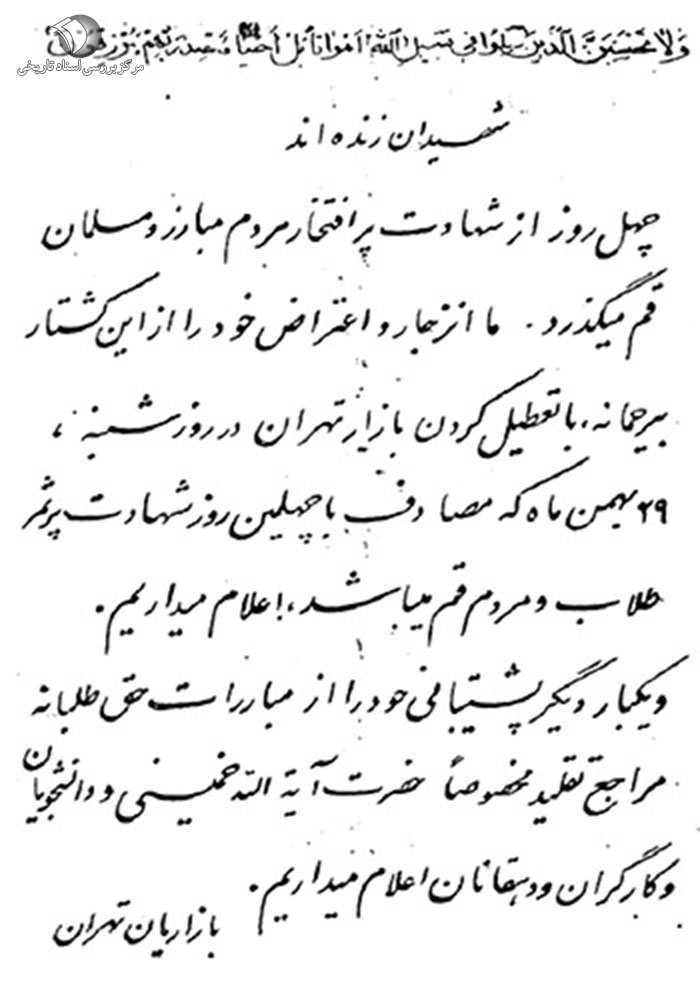 وَلا تَحْسَبَنَّ الَّذينَ قُتِلوا في سَبيلِ اللهِ اَمْواتاً بَلْ اَحْياءٌ عِنْدَ رَبِّهِمْ يُرْزَقُونَ
مرکز بررسی اسناد تاریخی
شهیدان زنده اند
چهل روز از شهادت پر افتخار مردم مبارز و مسلمان
قم میگذرد. ما انزجار و اعتراض خود را از این کشتار
بیرحمانه، با تعطیل کردن بازار تهران در روز شنبه،
۲۹ بهمن ماه که مصادف با چهلمین روز شهادت پرثمر
طلاب و مردم قم میباشد، اعلام میداریم.
و یکبار دیگر پشتیبانی خود را از مبارزات حق طلبانه
مراجع تقلید مخصوصاً حضرت آیة الله خمینی و دانشجویان
و کارگران و دهقانان اعلام میداریم.
بازاریان تهران